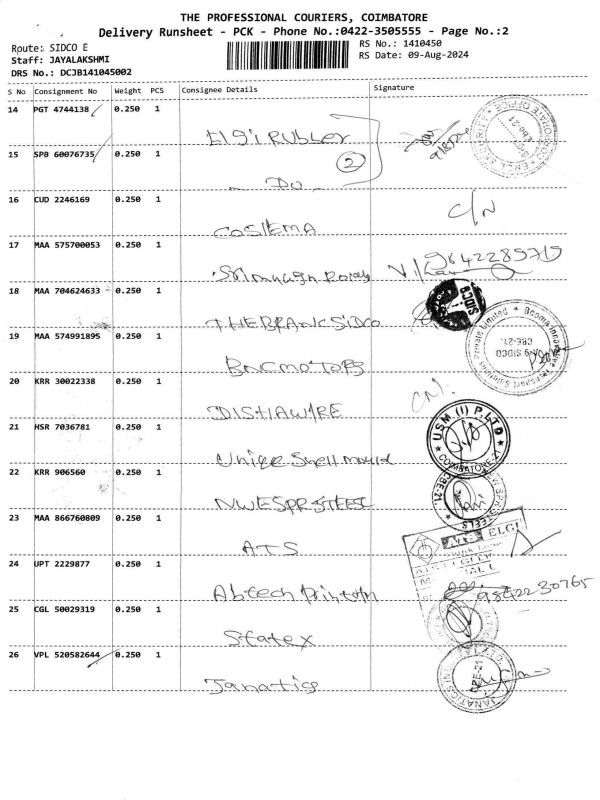 THE PROFESSIONAL COURIERS, COIMBATORE
Delivery Runsheet - PCK - Phone No.:0422-3505555 - Page No.:2
Route: SIDCO E RS No.: 1410450
Staff: JAYALAKSHMI RS Date: 09-Aug-2024
DRS No.: DCJB141045002
S No Consignment No Weight PCS Consignee Details Signature
14 PGT 4744138 0.250 1 Elgi Rubber
2
15 SPB 60076735 0.250 1 Do
16 CUD 2246169 0.250 1 COSIEMA C/N
17 MAA 575700053 0.250 1 9842285719
18 MAA 704624633 0.250 1 SIDCO
19 MAA 574991895 0.250 1 BNCMOTORS SIDCO CBE-21.
20 KRR 30022338 0.250 1 DISHAWIRE CN.
21 HSR 7036781 0.250 1 Unique Shell mould USM (I) P.LTD COIMBATORE
22 KRR 906560 0.250 1 CBE-21 STEELS
23 MAA 866760809 0.250 1 ATS ELGI
24 UPT 2229877 0.250 1 Abtech 9842230765
25 CGL 50029319 0.250 1 Statex
26 VPL 520582644 0.250 1 Janatics CBE-21 JANATICS